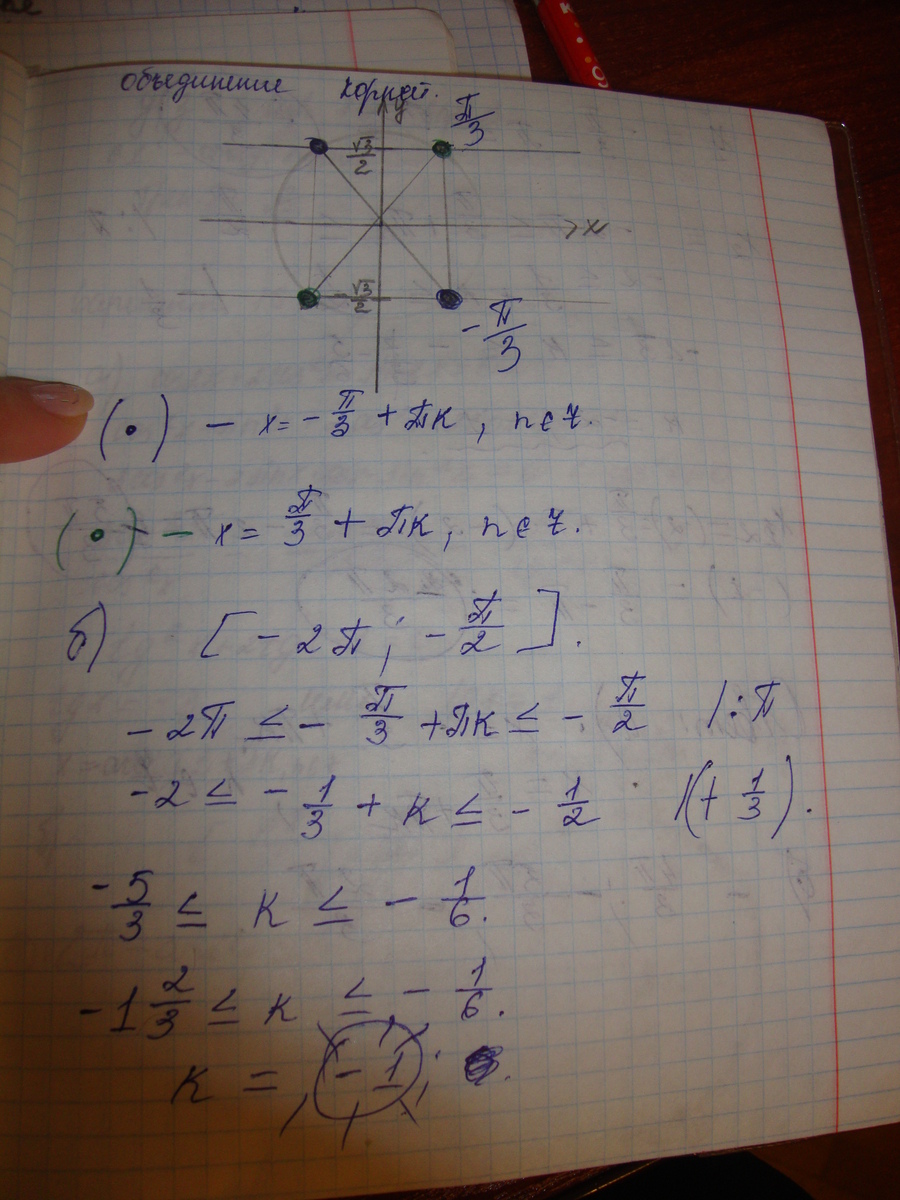 объединение корней.
y
π/3
√3/2
x
-√3/2
-π/3
(•) - x = -π/3 + πk, n∈Z.
(•) - x = π/3 + πk, n∈Z.
б) [-2π; -π/2].
-2π ≤ -π/3 + πk ≤ -π/2 /:π
-2 ≤ -1/3 + k ≤ -1/2 /(+1/3).
-5/3 ≤ k ≤ -1/6.
-1 2/3 ≤ k ≤ -1/6.
k = -1;